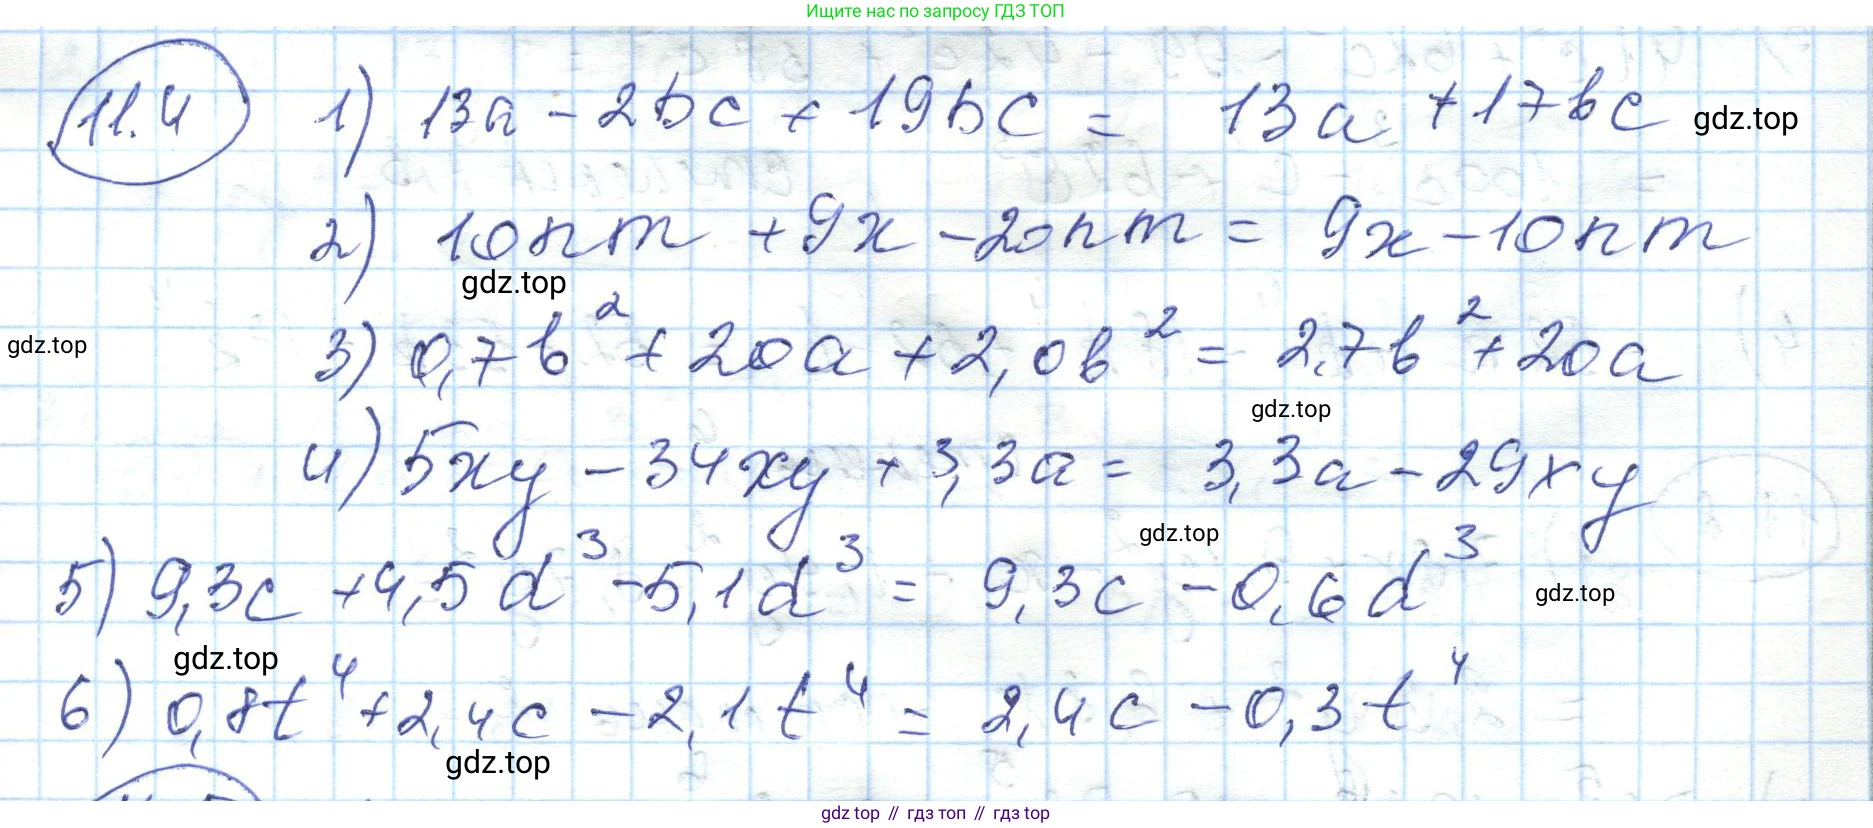 Ищите нас по запросу ГДЗ ТОП
11.4 1) 13a - 2bc + 19bc = 13a + 17bc gdz.top
2) 10nm + 9x - 20nm = 9x - 10nm
gdz.top
gdz.top 3) 0,7b² + 20a + 2,0b² = 2,7b² + 20a
gdz.top
4) 5xy - 34xy + 3,3a = 3,3a - 29xy
gdz.top
5) 9,3c + 4,5d³ - 5,1d³ = 9,3c - 0,6d³ gdz.top
gdz.top
6) 0,8t⁴ + 2,4c - 2,1t⁴ = 2,4c - 0,3t⁴
gdz.top
gdz top // гдз топ // gdz top